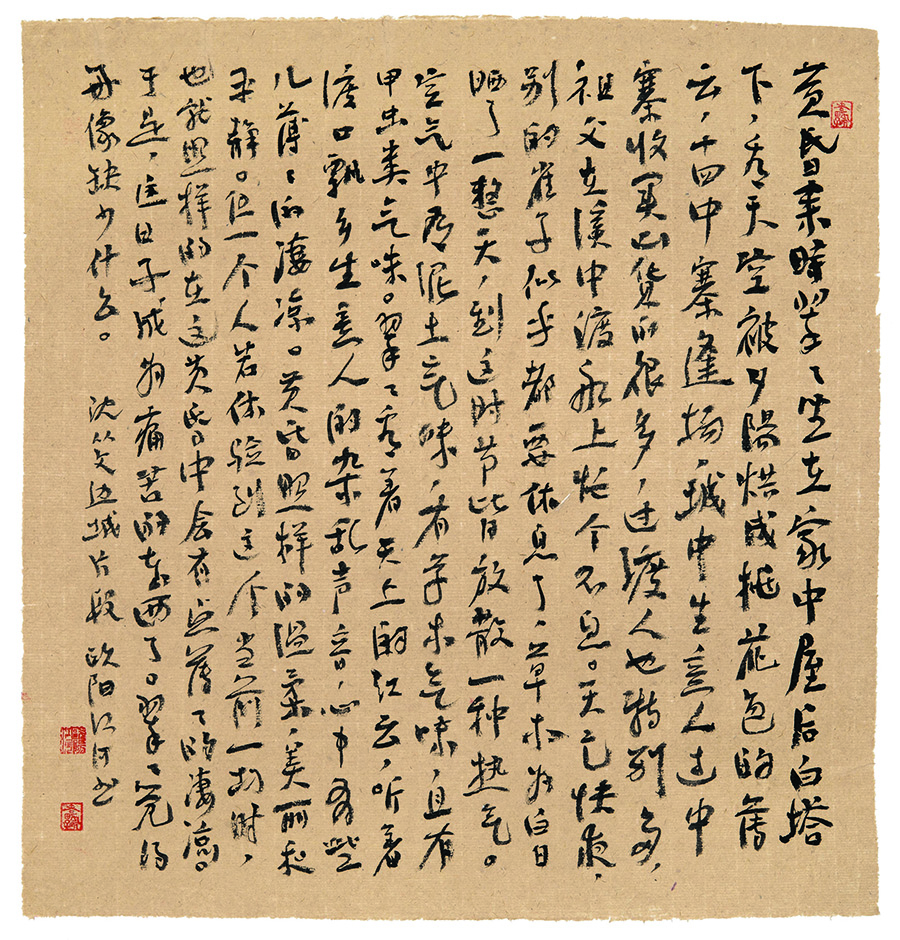 黄昏来时翠〻坐在家中屋后白塔
下,看天空被夕阳烘成桃花色的薄
云,十四中寨逢场,城中生意人过中
寨收买山货的很多,过渡人也特别多,
祖父在溪中渡船上忙个不息。天已快夜,
别的雀子似乎都要休息了,草木为白日
晒了一整天,到这时节皆放散一种热气。
空气中有泥土气味,有草木气味,且有
甲虫类气味。翠〻看着天上的红云,听着
渡口飘乡生意人的杂乱声音,心中有些
儿薄〻的凄凉。黄昏照样的温柔,美丽和
平静。但一个人若体验到这个当前一切时,
也就照样的在这黄昏中会有点薄〻的凄凉。
于是,这日子成为痛苦的东西了。翠〻觉得
好像缺少什么。 沈从文边城片段 欧阳江河书